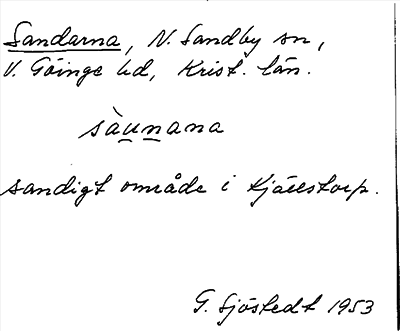 Sandarna, N. Sandby sn,
V. Göinge hd, Krist. län.
sàunana
sandigt område i Kjällstorp.
G. Sjöstedt 1953